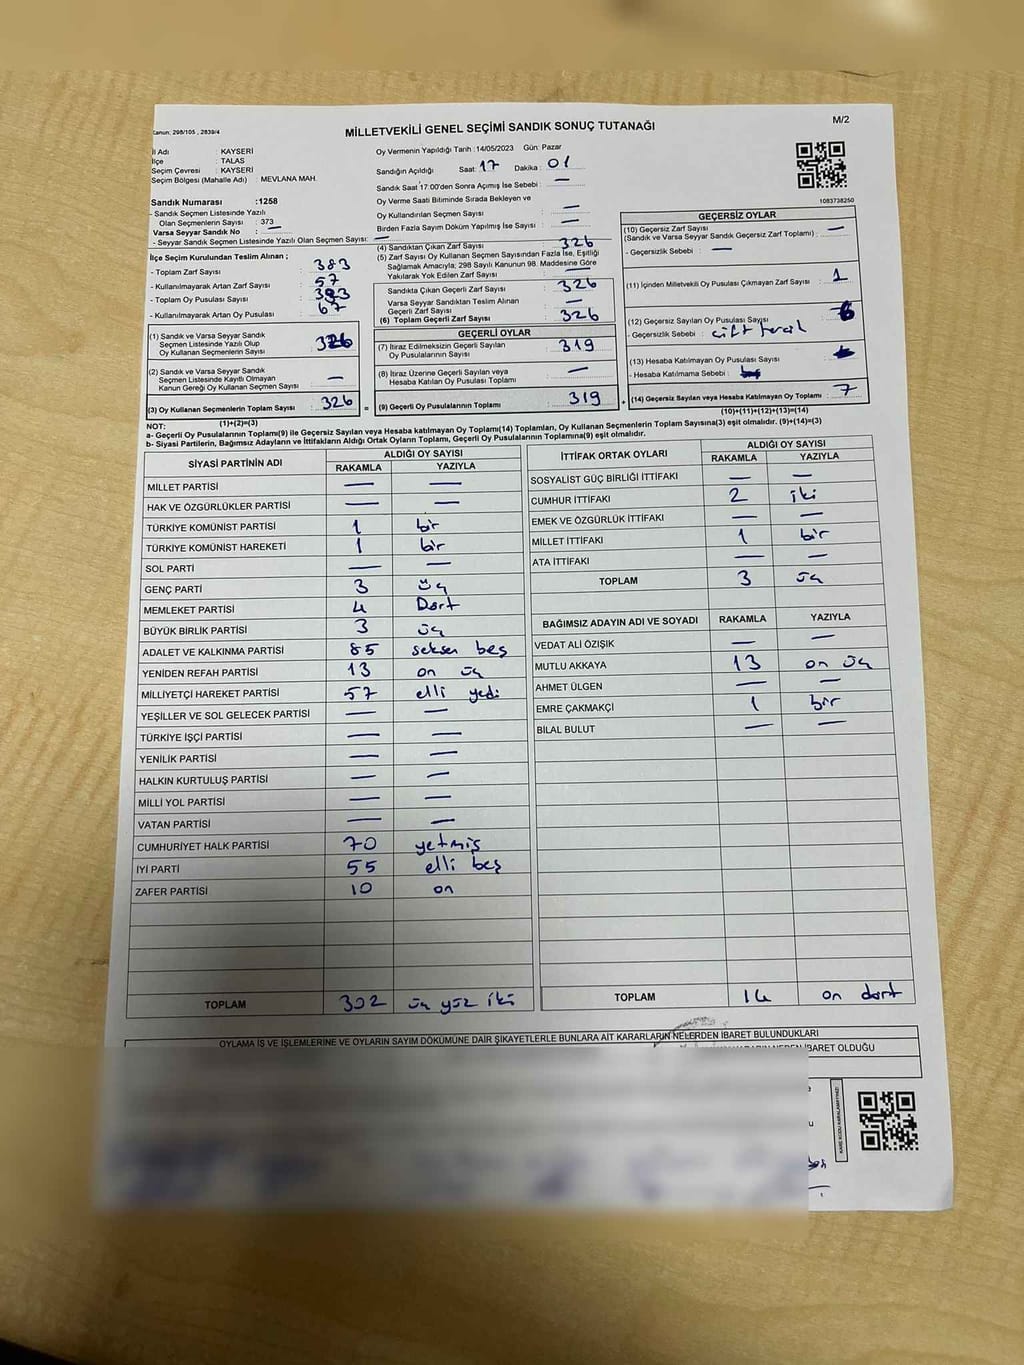 Kanun: 298/105 , 2839/4
MİLLETVEKİLİ GENEL SEÇİMİ SANDIK SONUÇ TUTANAĞI
M/2
İl Adı : KAYSERİ
İlçe : TALAS
Seçim Çevresi : KAYSERİ
Seçim Bölgesi (Mahalle Adı) : MEVLANA MAH.
Oy Vermenin Yapıldığı Tarih : 14/05/2023 Gün: Pazar
Sandığın Açıldığı Saat: 17 Dakika : 01
Sandık Saat 17:00'den Sonra Açımış İse Sebebi : —
Oy Verme Saati Bitiminde Sırada Bekleyen ve
Oy Kullandırılan Seçmen Sayısı : —
Birden Fazla Sayım Döküm Yapılmış İse Sayısı : —
1083738250
Sandık Numarası :1258
- Sandık Seçmen Listesinde Yazılı
Olan Seçmenlerin Sayısı : 373
Varsa Seyyar Sandık No : —
- Seyyar Sandık Seçmen Listesinde Yazılı Olan Seçmen Sayısı: —
İlçe Seçim Kurulundan Teslim Alınan ;
- Toplam Zarf Sayısı : 383
- Kullanılmayarak Artan Zarf Sayısı : 57
- Toplam Oy Pusulası Sayısı : 393
- Kullanılmayarak Artan Oy Pusulası : 67
(1) Sandık ve Varsa Seyyar Sandık
Seçmen Listesinde Yazılı Olup
Oy Kullanan Seçmenlerin Sayısı : 326
(2) Sandık ve Varsa Seyyar Sandık
Seçmen Listesinde Kayıtlı Olmayan
Kanun Gereği Oy Kullanan Seçmen Sayısı : —
(3) Oy Kullanan Seçmenlerin Toplam Sayısı : 326
(1)+(2)=(3)
(4) Sandıktan Çıkan Zarf Sayısı : 326
(5) Zarf Sayısı Oy Kullanan Seçmen Sayısından Fazla İse, Eşitliği
Sağlamak Amacıyla; 298 Sayılı Kanunun 98. Maddesine Göre
Yakılarak Yok Edilen Zarf Sayısı : —
Sandıkta Çıkan Geçerli Zarf Sayısı : 326
Varsa Seyyar Sandıktan Teslim Alınan
Geçerli Zarf Sayısı : —
(6) Toplam Geçerli Zarf Sayısı : 326
GEÇERLİ OYLAR
(7) İtiraz Edilmeksizin Geçerli Sayılan
Oy Pusulalarının Sayısı : 319
(8) İtiraz Üzerine Geçerli Sayılan veya
Hesaba Katılan Oy Pusulası Toplamı : —
= (9) Geçerli Oy Pusulalarının Toplamı : 319
GEÇERSİZ OYLAR
(10) Geçersiz Zarf Sayısı : —
(Sandık ve Varsa Seyyar Sandık Geçersiz Zarf Toplamı)
- Geçersizlik Sebebi : —
(11) İçinden Milletvekili Oy Pusulası Çıkmayan Zarf Sayısı : 1
(12) Geçersiz Sayılan Oy Pusulası Sayısı : 6
- Geçersizlik Sebebi : çift tercih
(13) Hesaba Katılmayan Oy Pusulası Sayısı :
- Hesaba Katılmama Sebebi :
+ (14) Geçersiz Sayılan veya Hesaba Katılmayan Oy Toplamı : 7
(10)+(11)+(12)+(13)=(14)
NOT:
a- Geçerli Oy Pusulalarının Toplamı(9) ile Geçersiz Sayılan veya Hesaba katılmayan Oy Toplamı(14) Toplamları, Oy Kullanan Seçmenlerin Toplam Sayısına(3) eşit olmalıdır. (9)+(14)=(3)
b- Siyasi Partilerin, Bağımsız Adayların ve İttifakların Aldığı Ortak Oyların Toplamı, Geçerli Oy Pusulalarının Toplamına(9) eşit olmalıdır.
SİYASİ PARTİNİN ADI ALDIĞI OY SAYISI
RAKAMLA YAZIYLA
MİLLET PARTİSİ — —
HAK VE ÖZGÜRLÜKLER PARTİSİ — —
TÜRKİYE KOMÜNİST PARTİSİ 1 bir
TÜRKİYE KOMÜNİST HAREKETİ 1 bir
SOL PARTİ — —
GENÇ PARTİ 3 üç
MEMLEKET PARTİSİ 4 Dört
BÜYÜK BİRLİK PARTİSİ 3 üç
ADALET VE KALKINMA PARTİSİ 85 seksen beş
YENİDEN REFAH PARTİSİ 13 on üç
MİLLİYETÇİ HAREKET PARTİSİ 57 elli yedi
YEŞİLLER VE SOL GELECEK PARTİSİ — —
TÜRKİYE İŞÇİ PARTİSİ — —
YENİLİK PARTİSİ — —
HALKIN KURTULUŞ PARTİSİ — —
MİLLİ YOL PARTİSİ — —
VATAN PARTİSİ — —
CUMHURİYET HALK PARTİSİ 70 yetmiş
İYİ PARTİ 55 elli beş
ZAFER PARTİSİ 10 on
TOPLAM 302 üç yüz iki
İTTİFAK ORTAK OYLARI ALDIĞI OY SAYISI
RAKAMLA YAZIYLA
SOSYALİST GÜÇ BİRLİĞİ İTTİFAKI — —
CUMHUR İTTİFAKI 2 iki
EMEK VE ÖZGÜRLÜK İTTİFAKI — —
MİLLET İTTİFAKI 1 bir
ATA İTTİFAKI — —
TOPLAM 3 üç
BAĞIMSIZ ADAYIN ADI VE SOYADI RAKAMLA YAZIYLA
VEDAT ALİ ÖZIŞIK — —
MUTLU AKKAYA 13 on üç
AHMET ÜLGEN — —
EMRE ÇAKMAKÇİ 1 bir
BİLAL BULUT — —
TOPLAM 14 on dört
OYLAMA İŞ VE İŞLEMLERİNE VE OYLARIN SAYIM DÖKÜMÜNE DAİR ŞİKAYETLERLE BUNLARA AİT KARARLARIN NELERDEN İBARET BULUNDUKLARI
İBARET OLDUĞU